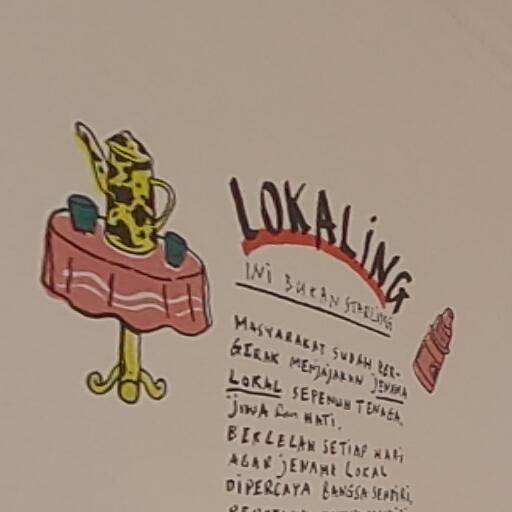 LOKALING
INI BUKAN STARLING
MASYARAKAT SUDAH BER-
GERAK MENJAJAKAN JENAMA
LOKAL SEPENUH TENAGA,
JIWA dan HATI.
BERLELAH SETIAP HARI
AGAR JENAMA LOKAL
DIPERCAYA BANGSA SENDIRI,